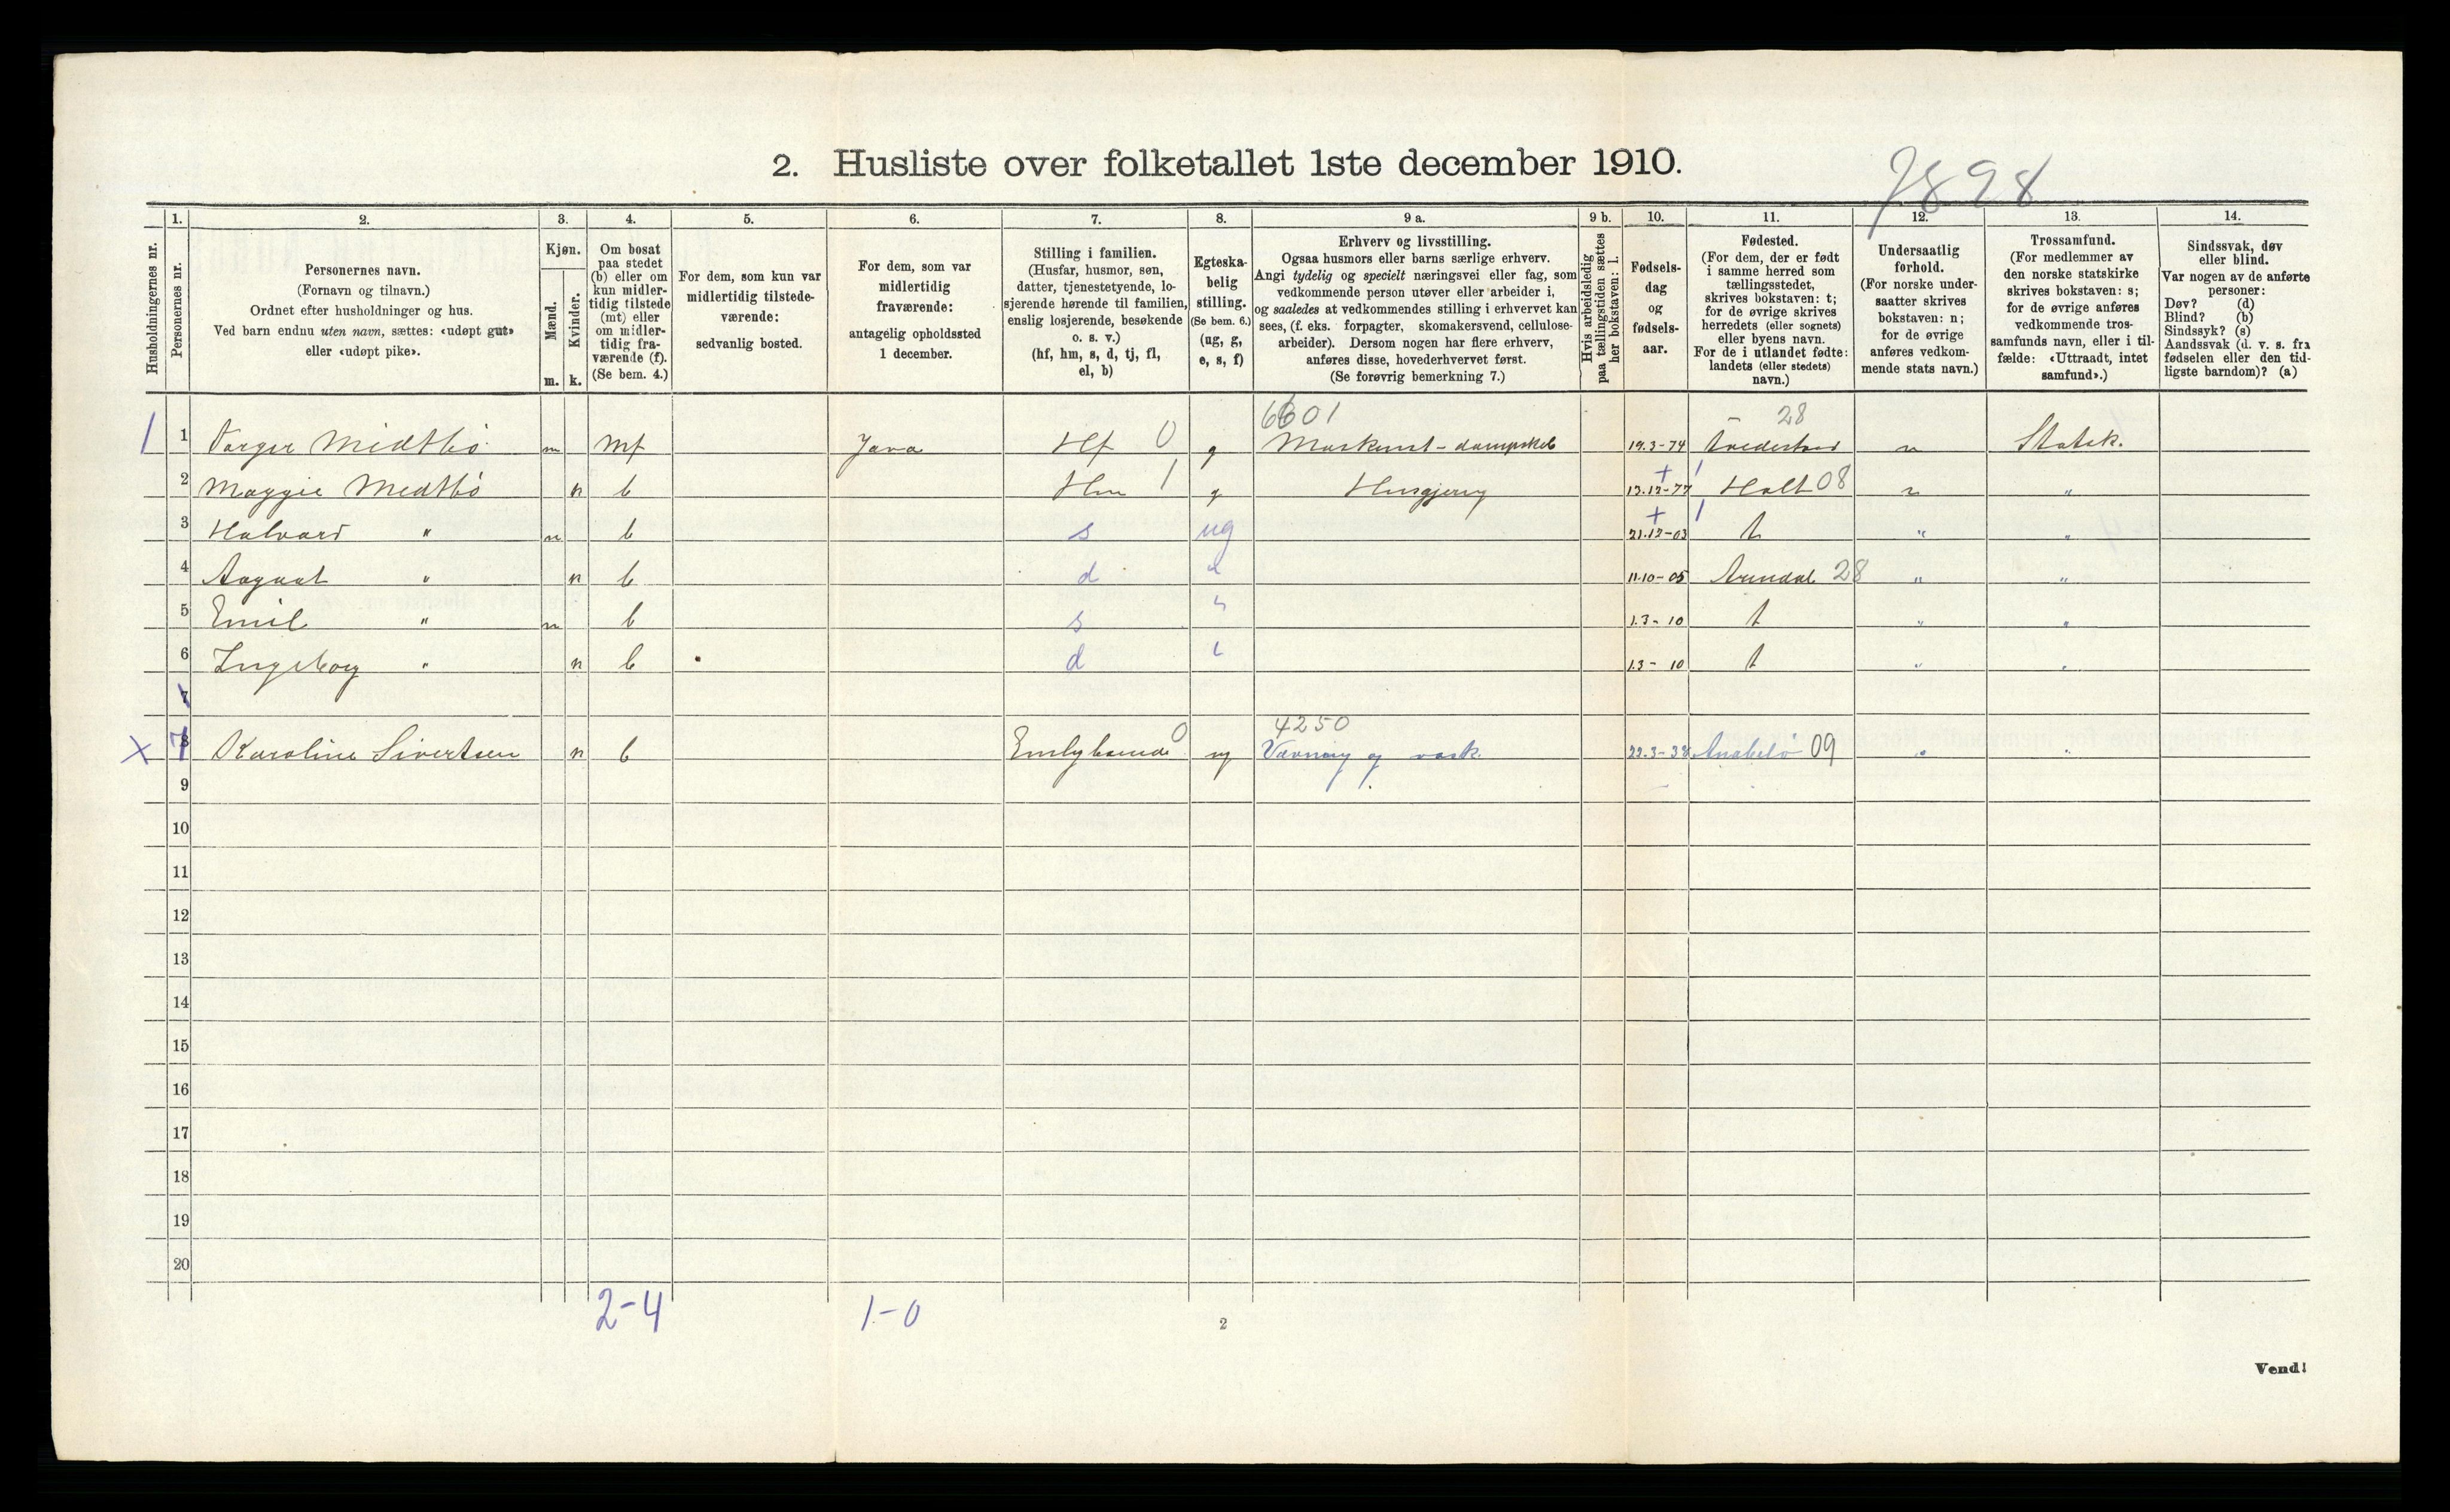 2. Husliste over folketallet 1ste december 1910.
7898
Husholdningernes nr.
1.
Personernes nr.
2.
Personernes navn.
(Fornavn og tilnavn.)
Ordnet efter husholdninger og hus.
Ved barn endnu uten navn, sættes: «udøpt gut»
eller «udøpt pike».
3.
Kjøn.
Mænd.
Kvinder.
m. k.
4.
Om bosat
paa stedet
(b) eller om
kun midler-
tidig tilstede
(mt) eller
om midler-
tidig fra-
værende (f).
(Se bem. 4.)
5.
For dem, som kun var
midlertidig tilstede-
værende:
sedvanlig bosted.
6.
For dem, som var
midlertidig
fraværende:
antagelig opholdssted
1 december.
7.
Stilling i familien.
(Husfar, husmor, søn,
datter, tjenestetyende, lo-
sjerende hørende til familien,
enslig losjerende, besøkende
o. s. v.)
(hf, hm, s, d, tj, fl,
el, b)
8.
Egteska-
belig
stilling.
(Se bem. 6.)
(ug, g,
e, s, f)
9 a.
Erhverv og livsstilling.
Ogsaa husmors eller barns særlige erhverv.
Angi tydelig og specielt næringsvei eller fag, som
vedkommende person utøver eller arbeider i,
og saaledes at vedkommendes stilling i erhvervet kan
sees, (f. eks. forpagter, skomakersvend, cellulose-
arbeider). Dersom nogen har flere erhverv,
anføres disse, hovederhvervet først.
(Se forøvrig bemerkning 7.)
9 b.
Hvis arbeidsledig
paa tællingstiden sættes
her bokstaven: l.
10.
Fødsels-
dag
og
fødsels-
aar.
11.
Fødested.
(For dem, der er født
i samme herred som
tællingsstedet,
skrives bokstaven: t;
for de øvrige skrives
herredets (eller sognets)
eller byens navn.
For de i utlandet fødte:
landets (eller stedets)
navn.)
12.
Undersaatlig
forhold.
(For norske under-
saatter skrives
bokstaven: n;
for de øvrige
anføres vedkom-
mende stats navn.)
13.
Trossamfund.
(For medlemmer av
den norske statskirke
skrives bokstaven: s;
for de øvrige anføres
vedkommende tros-
samfunds navn, eller i til-
fælde: «Uttraadt, intet
samfund».)
14.
Sindssvak, døv
eller blind.
Var nogen av de anførte
personer:
Døv? (d)
Blind? (b)
Sindssyk? (s)
Aandssvak (d. v. s. fra
fødselen eller den tid-
ligste barndom)? (a)
6601 28
1 1 Torger Midtbö m mf Java Hf 0 g Maskinist - dampskib 19.3-74 Tvedestrand n Statsk.
2 Maggie Midtbö k b Hm 1 g Husgjerng 13.12-77 Holt 08 n "
3 Halvard " m b s ug 21.12-03 t " "
4 Aagaat " k b d " 11.10-05 Arendal 28 " "
5 Emil " m b s " 1.3-10 t " "
6 Ingeborg " k b d " 1.3-10 t " "
7
4250
x 7 8 Karoline Sivertsen k b 0 ug Vævning og vask. 22.3-38 09 " "
9
10
11
12
13
14
15
16
17
18
19
20
2-4 1-0
2
Vend!